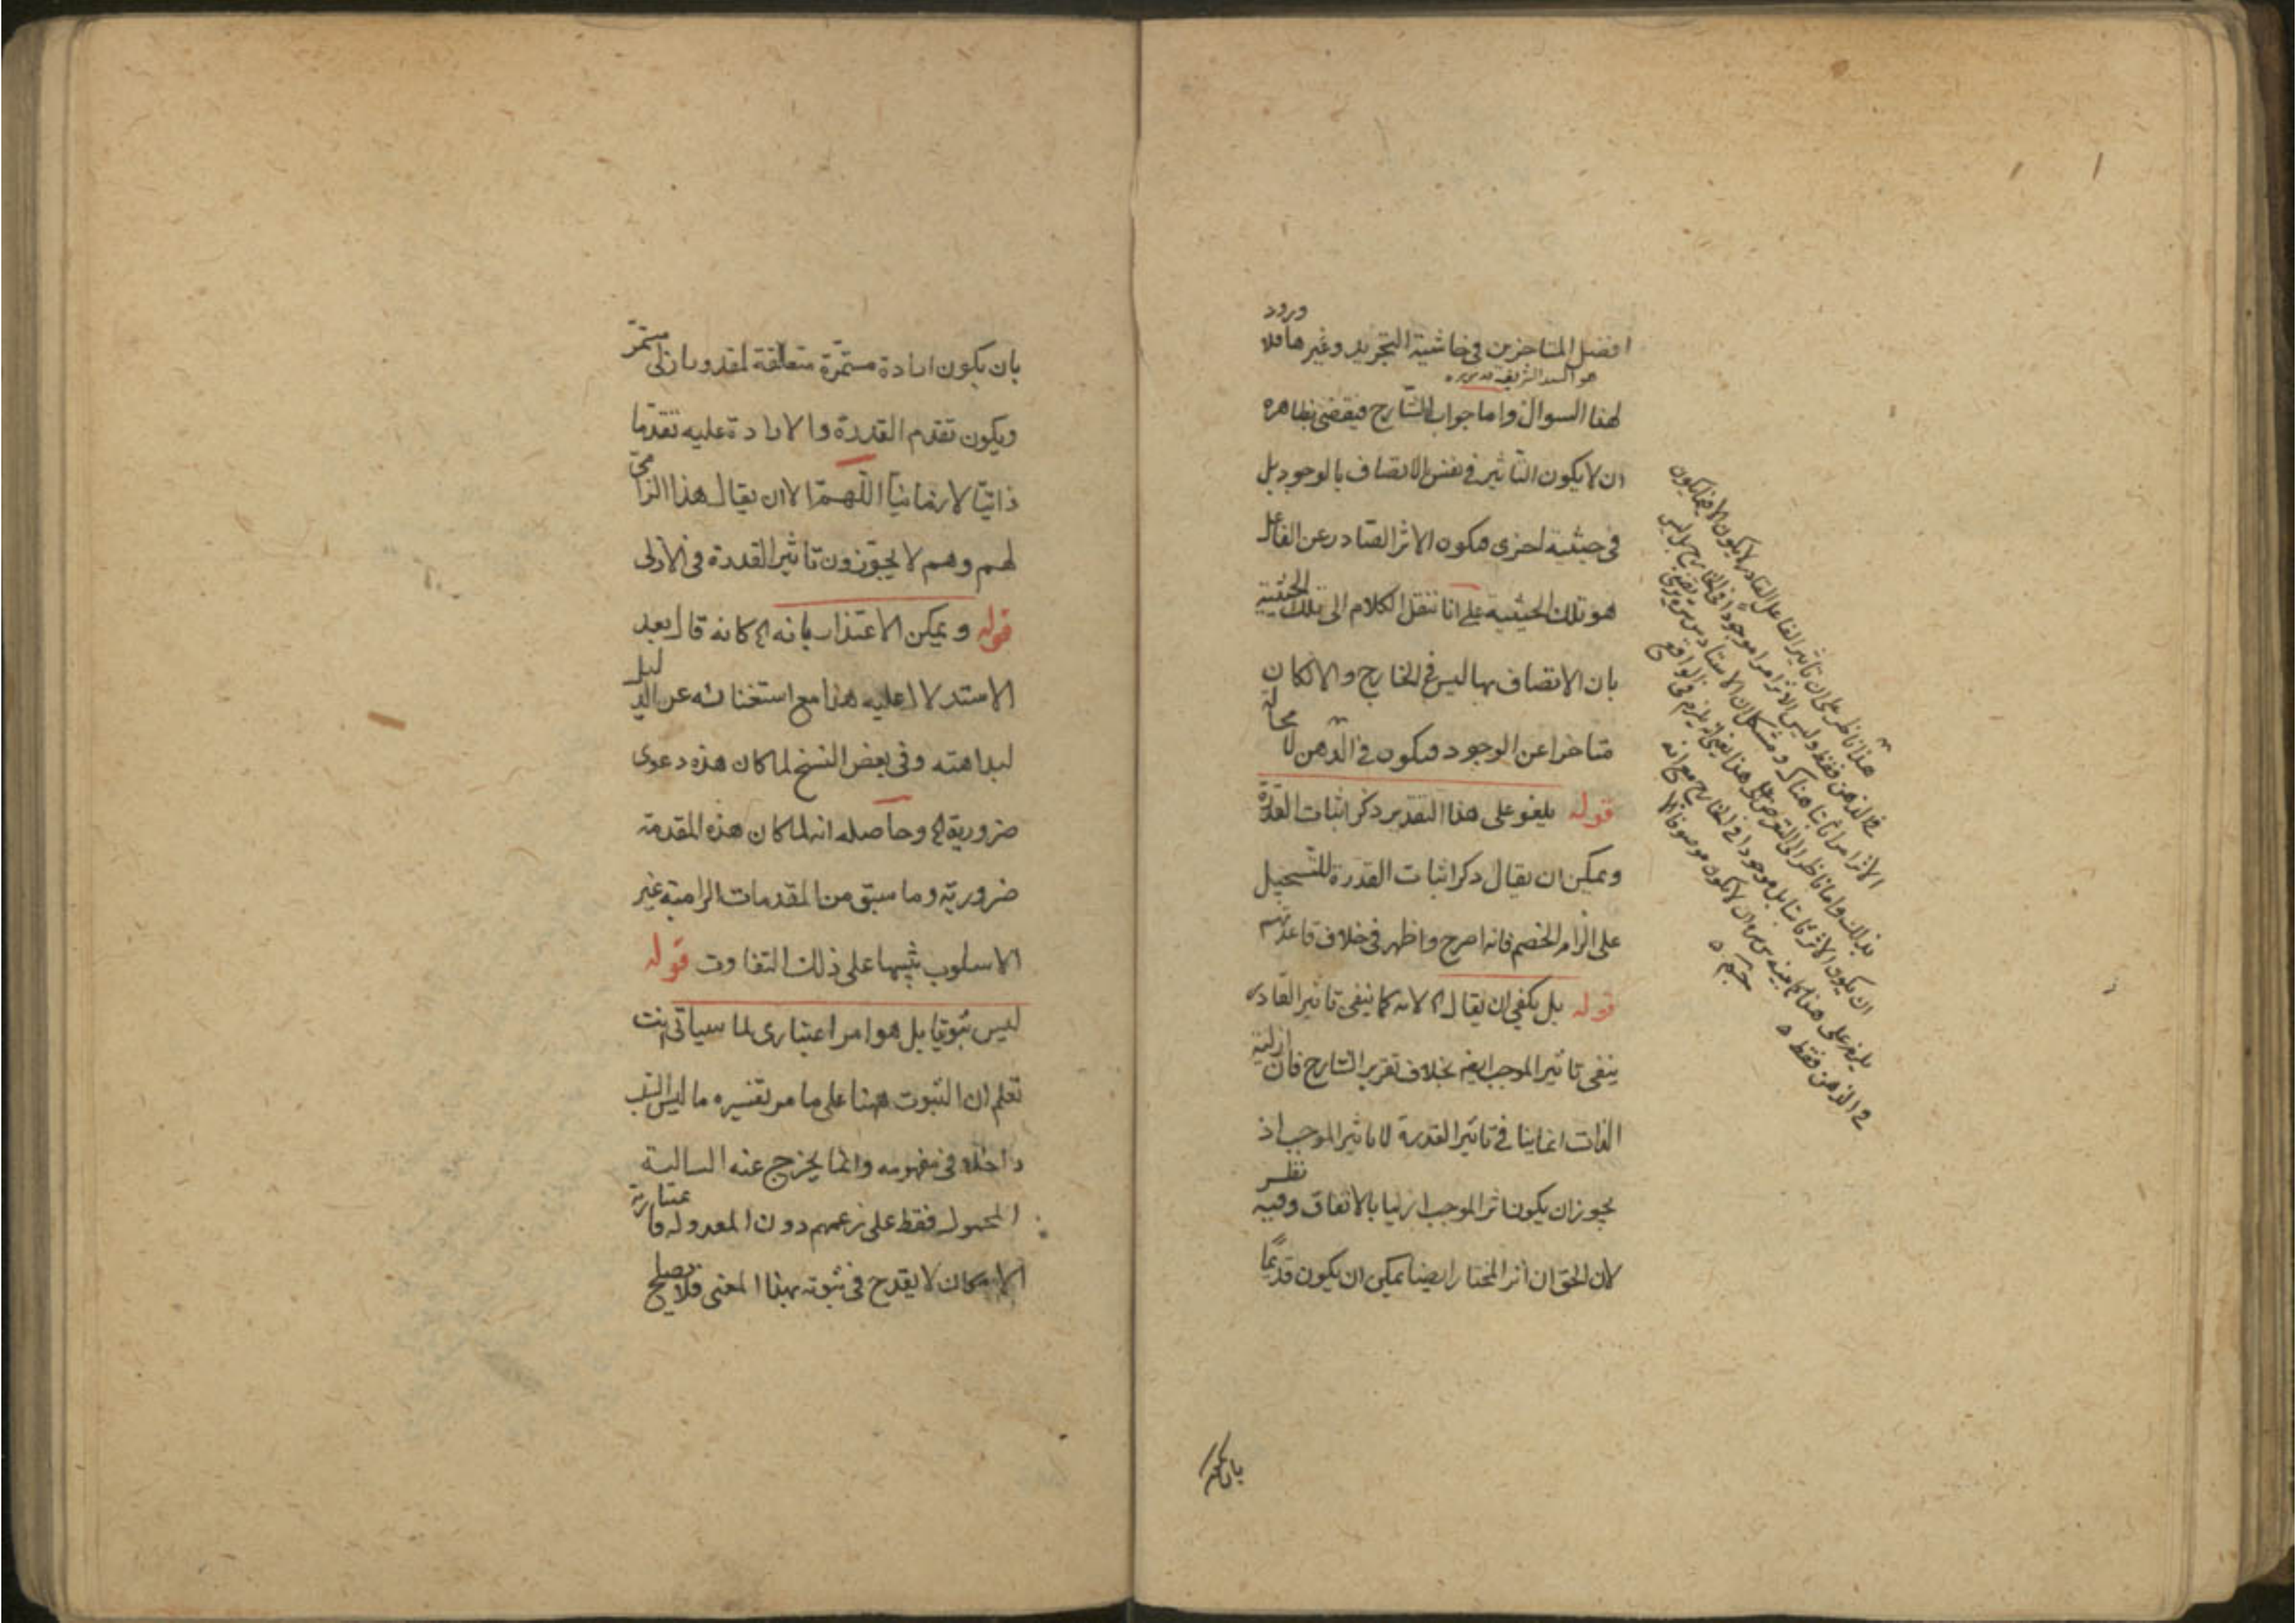 افضل المتاخرين في حاشية التجريد وغيرها فلا ورود
هو السيد الشريف قدس سره
لهذا السوال واما جواب الشارح فيقضي بظاهره
ان لا يكون التاثير في نفس الاتصاف بالوجود بل
في حيثية اخرى فيكون الاثر الصادر عن الفاعل
هو تلك الحيثية على انا ننقل الكلام الى تلك الحيثية
بان الاتصاف بها ليس في الخارج والا لكان
متاخرا عن الوجود فيكون في الذهن لا محالة
قوله يلغو على هذا التقدير ذكر اثبات القدرة
ويمكن ان يقال ذكر اثبات القدرة للتسجيل
على الزام الخصم فانه اصرح واظهر في خلاف قاعدتهم
قوله بل يكفي ان يقال الخ لانه كما ينفي تاثير القادر
ينفي تاثير الموجب ايضا بخلاف تقرير الشارح فان ازلية
الذات انما ينافي تاثير القدرة لا تاثير الموجب اذ
يجوز ان يكون اثر الموجب ازليا بالاتفاق وفيه نظر
لان الحق ان اثر المختار ايضا يمكن ان يكون قديما
هذا ناظر على ان تاثير الفاعل القادر لا يكون الا فيما يكون
في الذهن فقط وليس الاثر امرا موجودا في الخارج بل ليس
الاثر امرا ثابتا هناك
بذلك واما ناظر الى
ان يكون الاثر ثابتا بل موجودا في الخارج مع انه
يلزم على هذا ان لا يكون موصوفا الا
في الذهن فقط
بان يكون
بان يكون ارادة مستمرة متعلقة لمقدور ازلي مستمر
ويكون تقدم القدرة والارادة عليه تقدما
ذاتيا لا زمانيا اللهم الا ان يقال هذا الزامي
لهم وهم لا يجوزون تاثير القدرة في الازلى
قوله ويمكن الاعتذار بانه الخ كانه قال بعد
الاستدلال عليه هذا مع استغنائه عن الدليل
لبداهته وفي بعض النسخ لما كان هذه دعوى
ضرورية الخ وحاصله انه لما كان هذه المقدمة
ضرورية وما سبق من المقدمات الزامية غير
الاسلوب تنبيها على ذلك التفاوت قوله
ليس ثبوتيا بل هو امر اعتبارى لما سياتى انت
تعلم ان الثبوت ههنا على ما مر تفسيره ما ليس السلب
داخلا في مفهومه وانما يخرج عنه السالبة
المحمول فقط على زعمهم دون المعدولة فاعتبارية
الامكان لا يقدح في ثبوته بهذا المعنى فلا يصلح